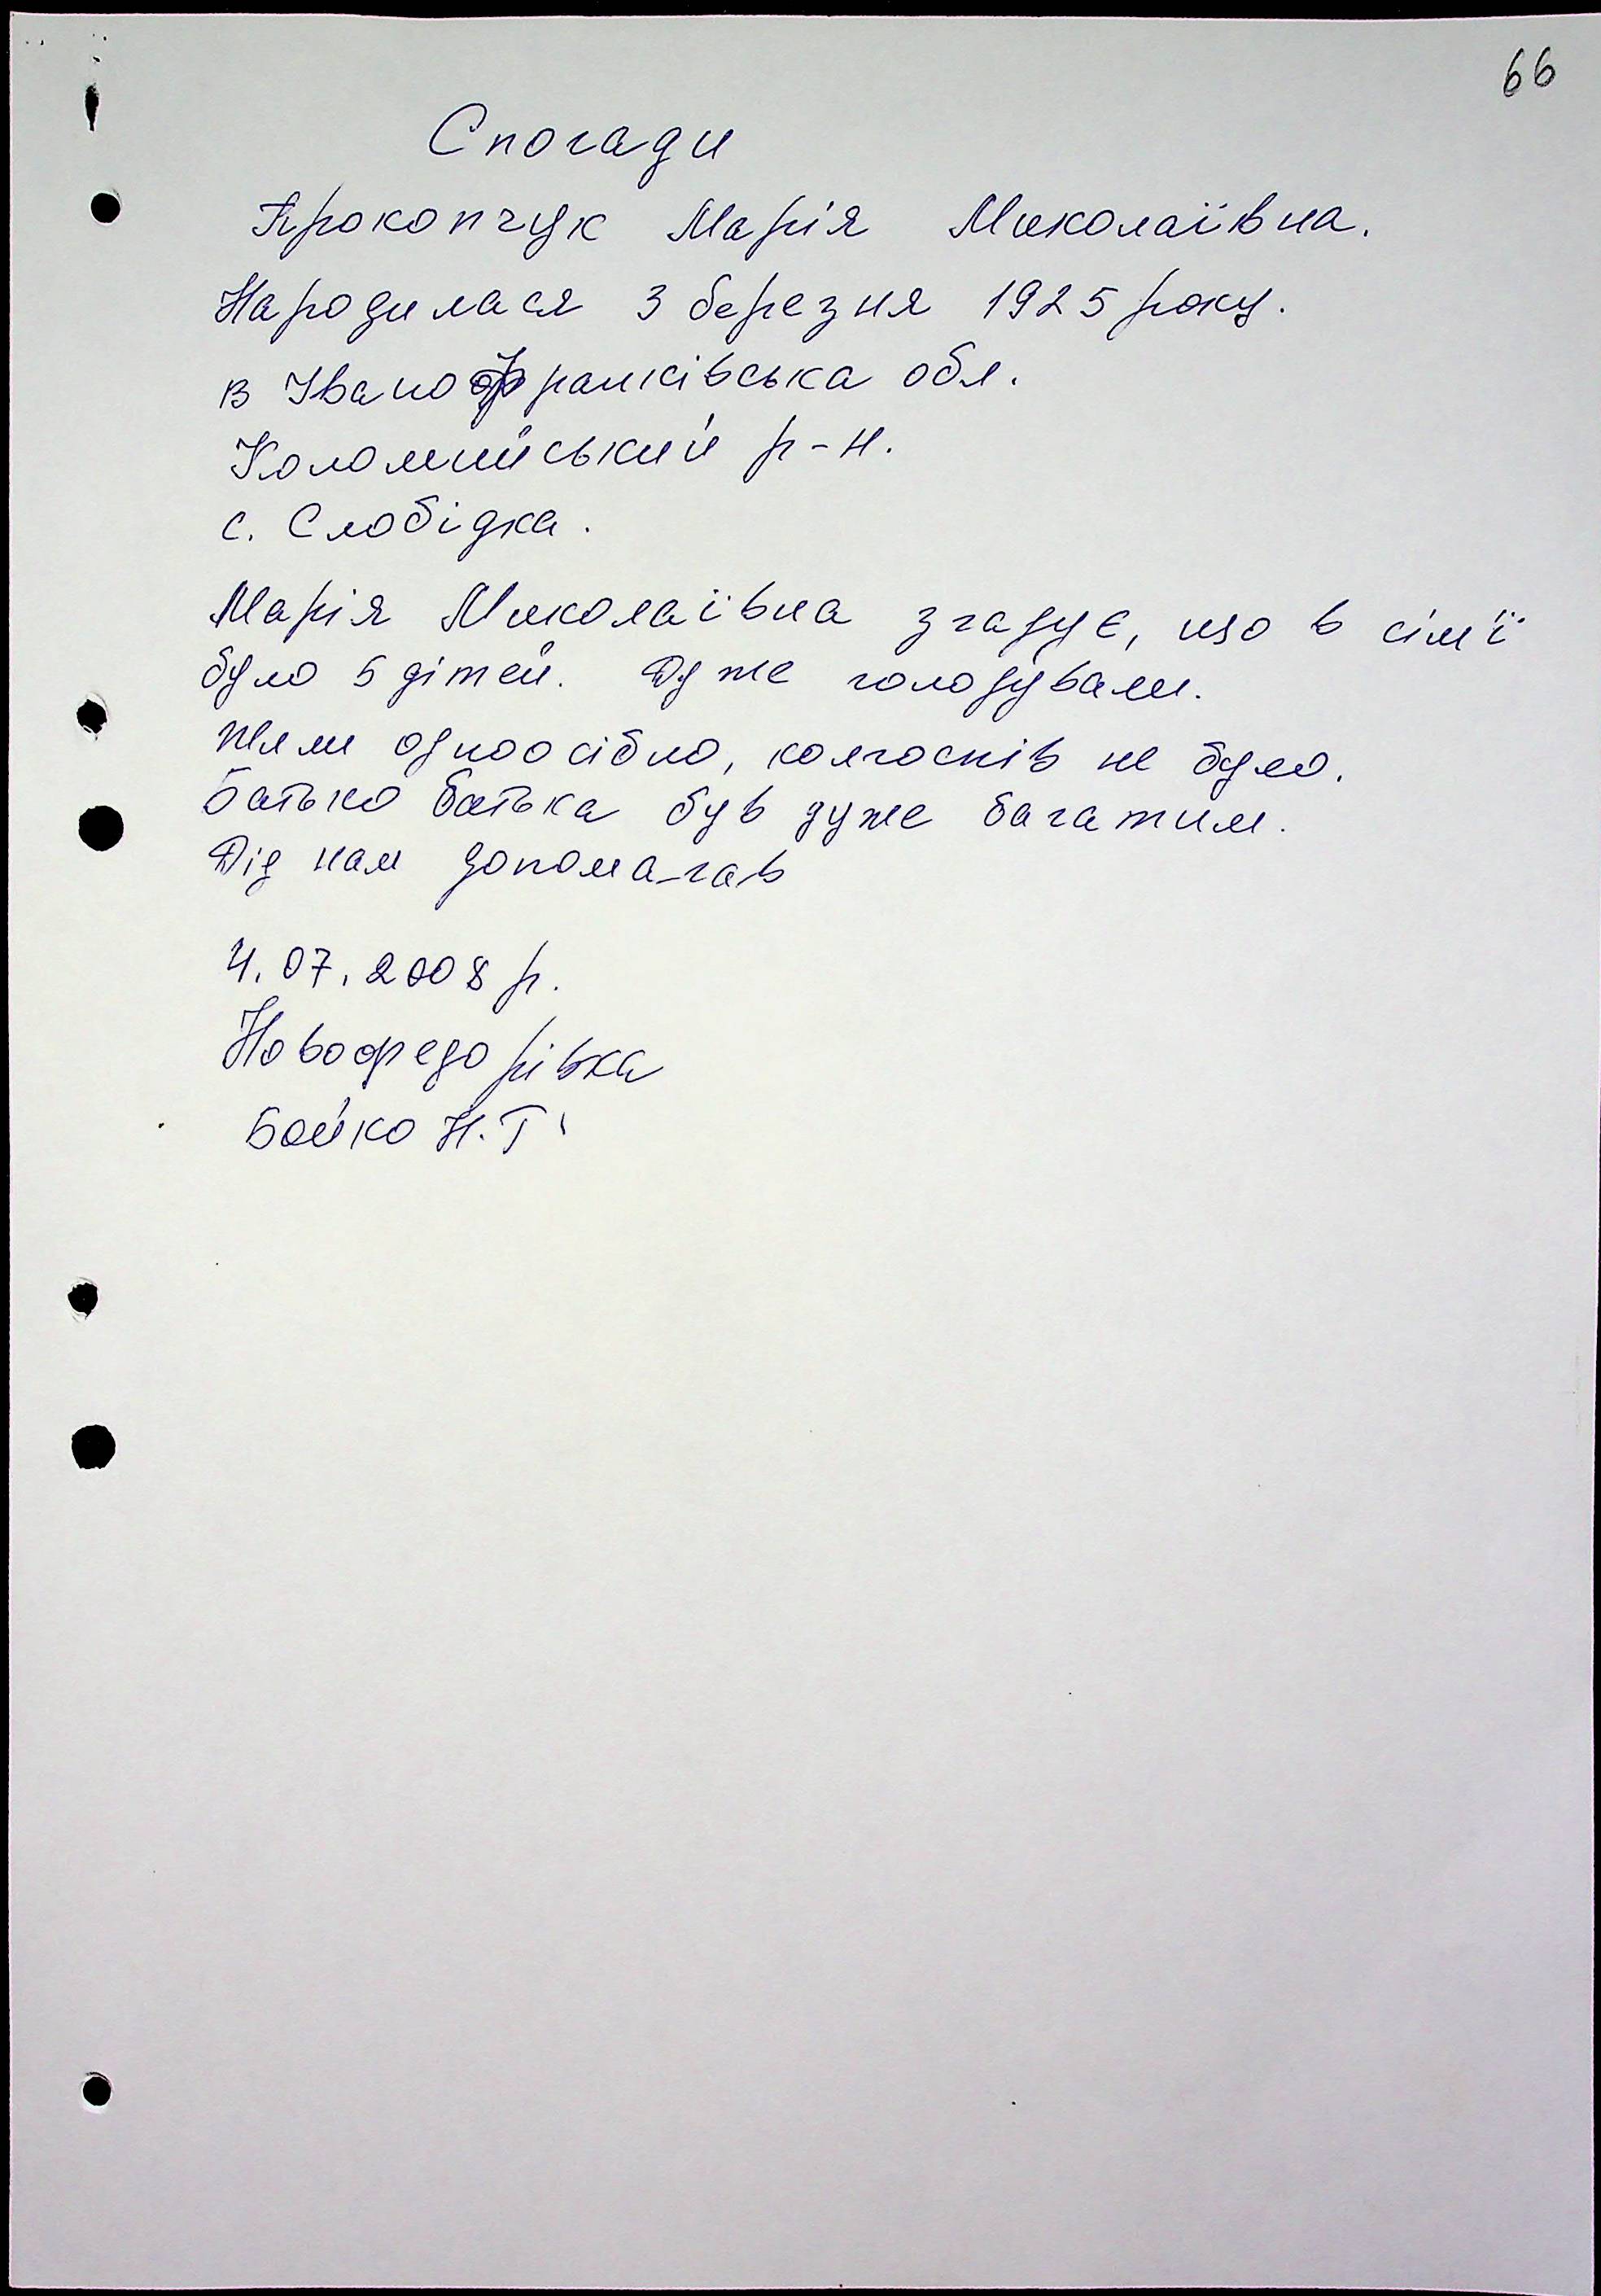 66
Спогади
Прокопчук Марія Миколаївна.
Народилася 3 березня 1925 року.
в Іванофранківська обл.
Коломийський р-н.
с. Слобідка.
Марія Миколаївна згадує, що в сім'ї
було 5 дітей. Дуже голодували.
Жили одноосібно, колгоспів не було.
Батько батька був дуже багатим.
Дід нам допомагав
4.07.2008 р.
Новофедорівка
Бойко Н.Т.